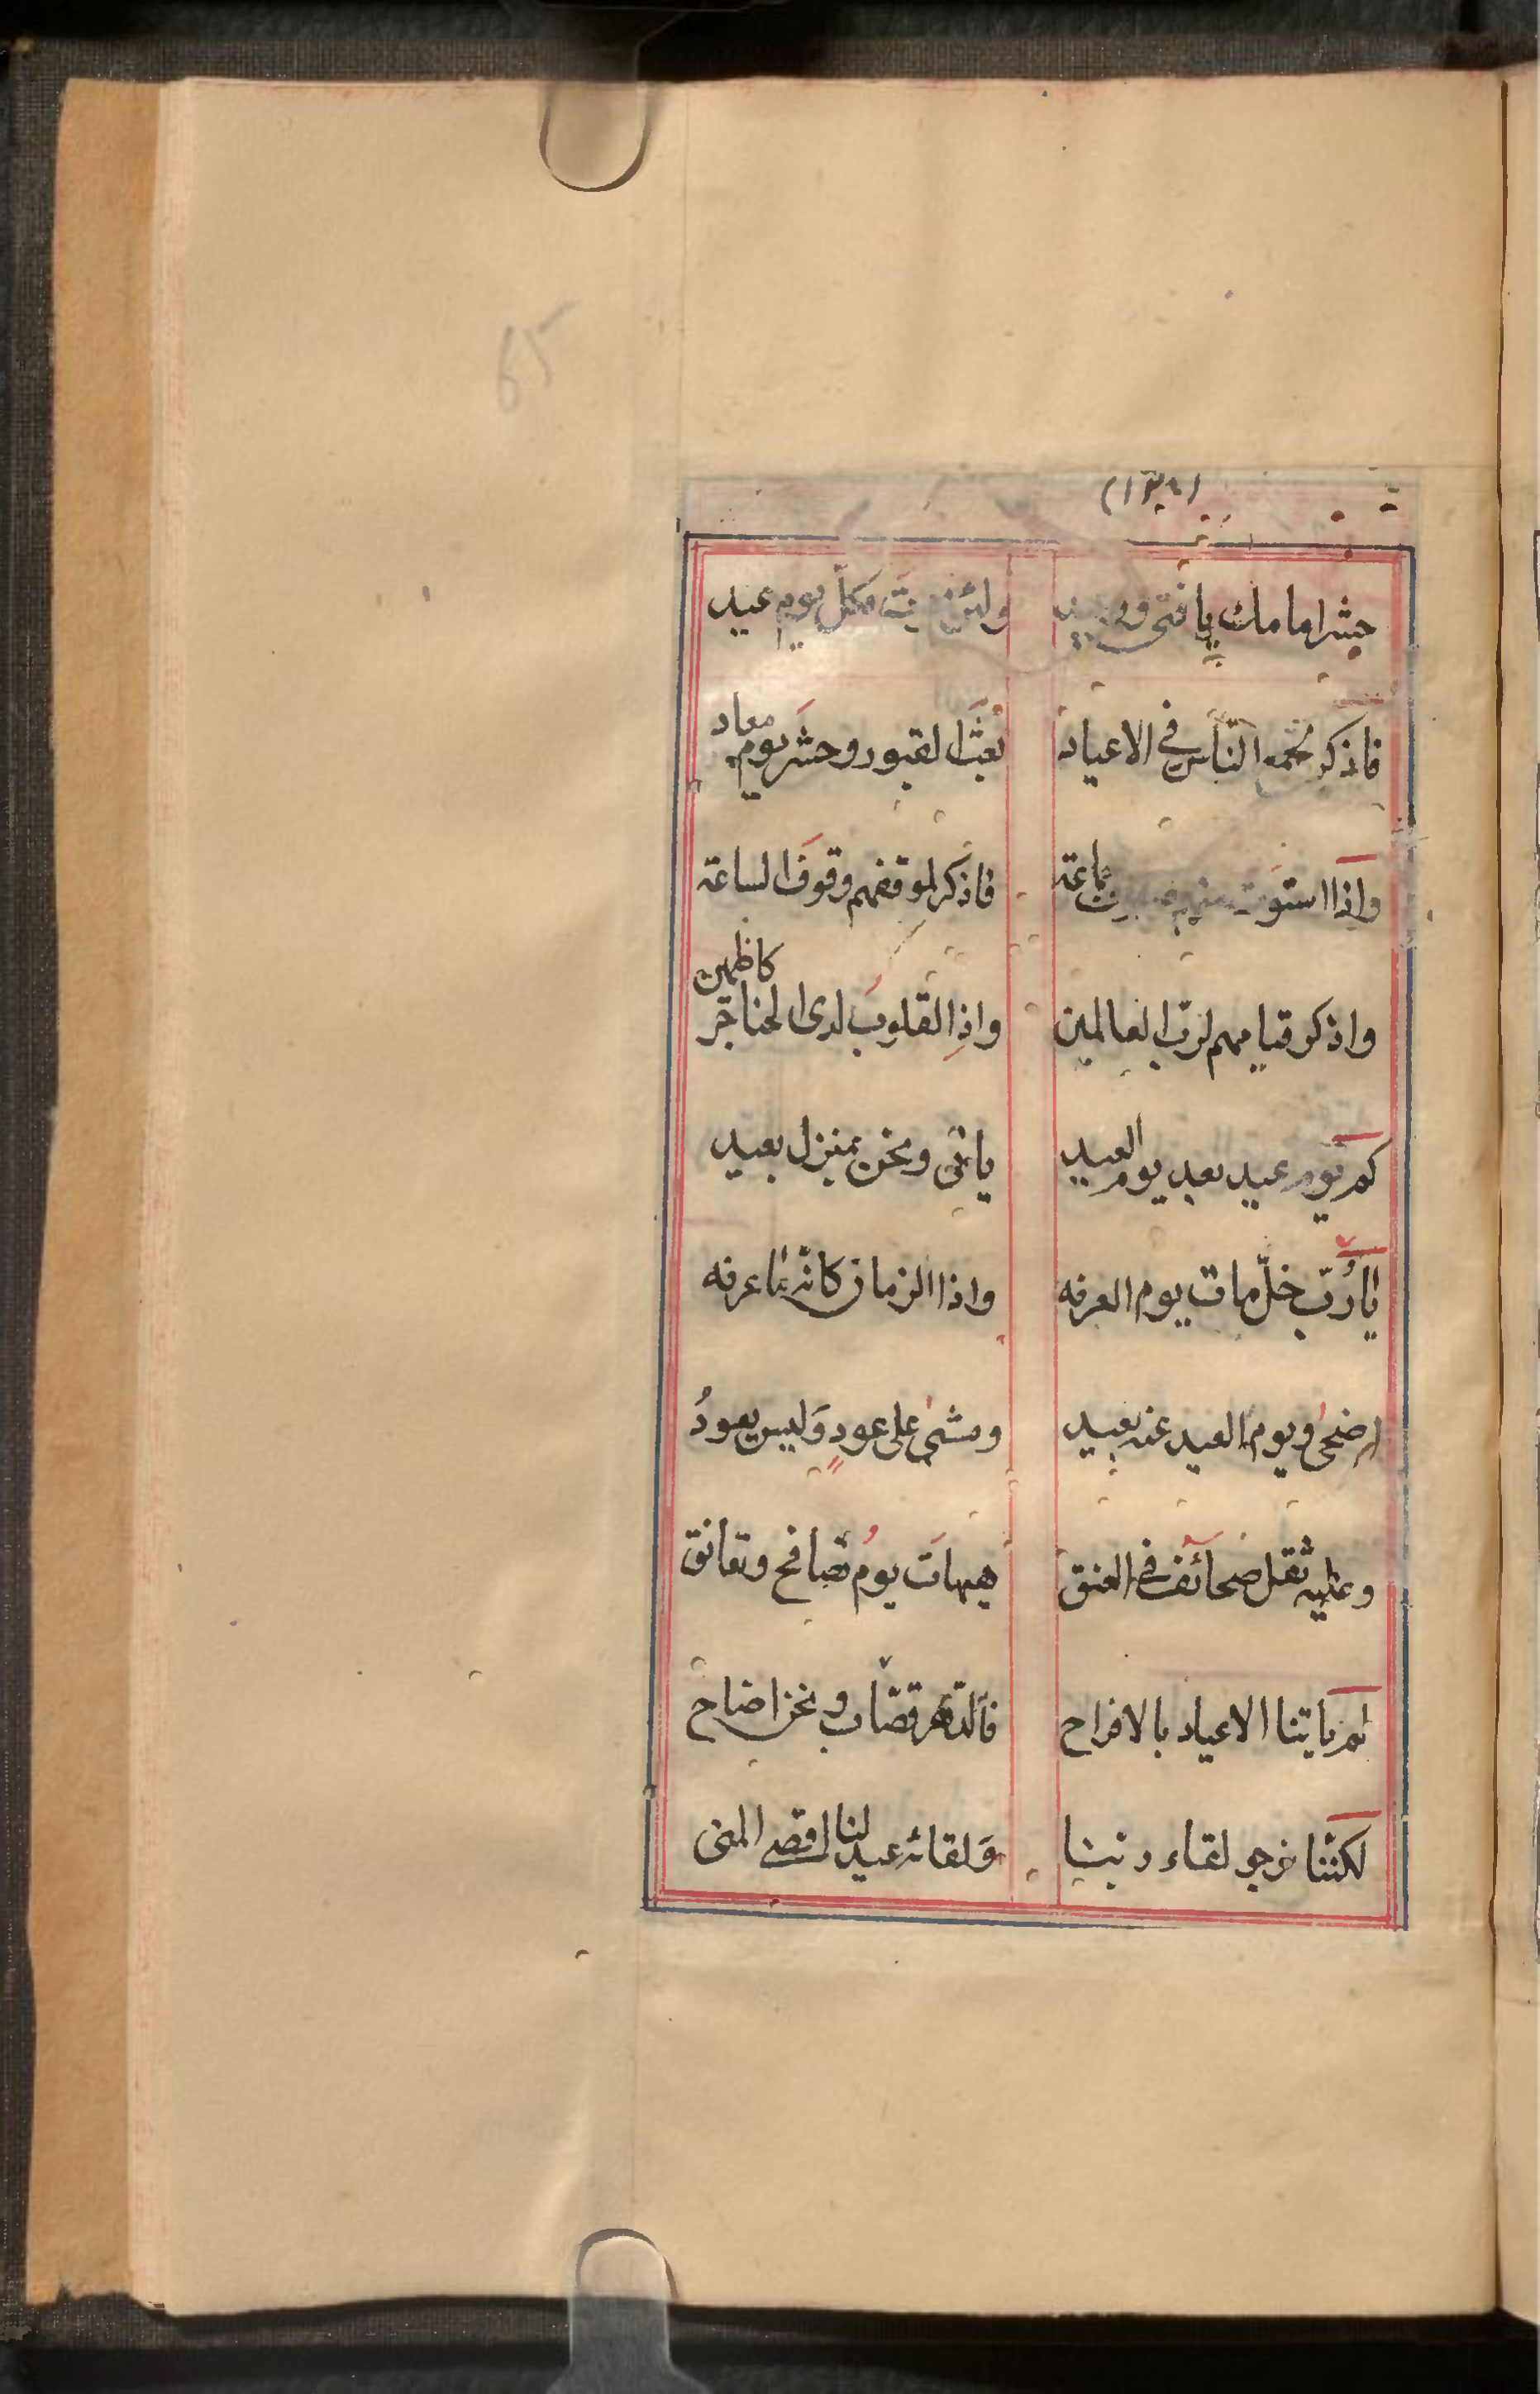 65
حشر امامك يا فتى ولئن نجيت فكل يوم عيد
فاذكر لمجمع الناس في الاعياد بعث القبور وحشر يوم معاد
واذا استوت منهم جماعة فاذكر لموقفهم وقوف الساعة
واذكر قيامهم لرب العالمين واذ القلوب لدى الحناجر كاظمين
كم يوم عيد بعد يوم العيد ياتى ونحن بمنزل بعيد
يا رب خل مات يوم العرفه واذا الزمان كانه ما عرفه
اضحى ويوم العيد عنه بعيد ومشى على عود وليس يعود
وعليه ثقل صحائف في العنق هيهات يوم تصافح وتعانق
لم ياتنا الاعياد بالافراح فالدهر قصاب ونحن اضاح
لكننا نرجو لقاء ربنا ولقائه عيد لنا اقصى المنى